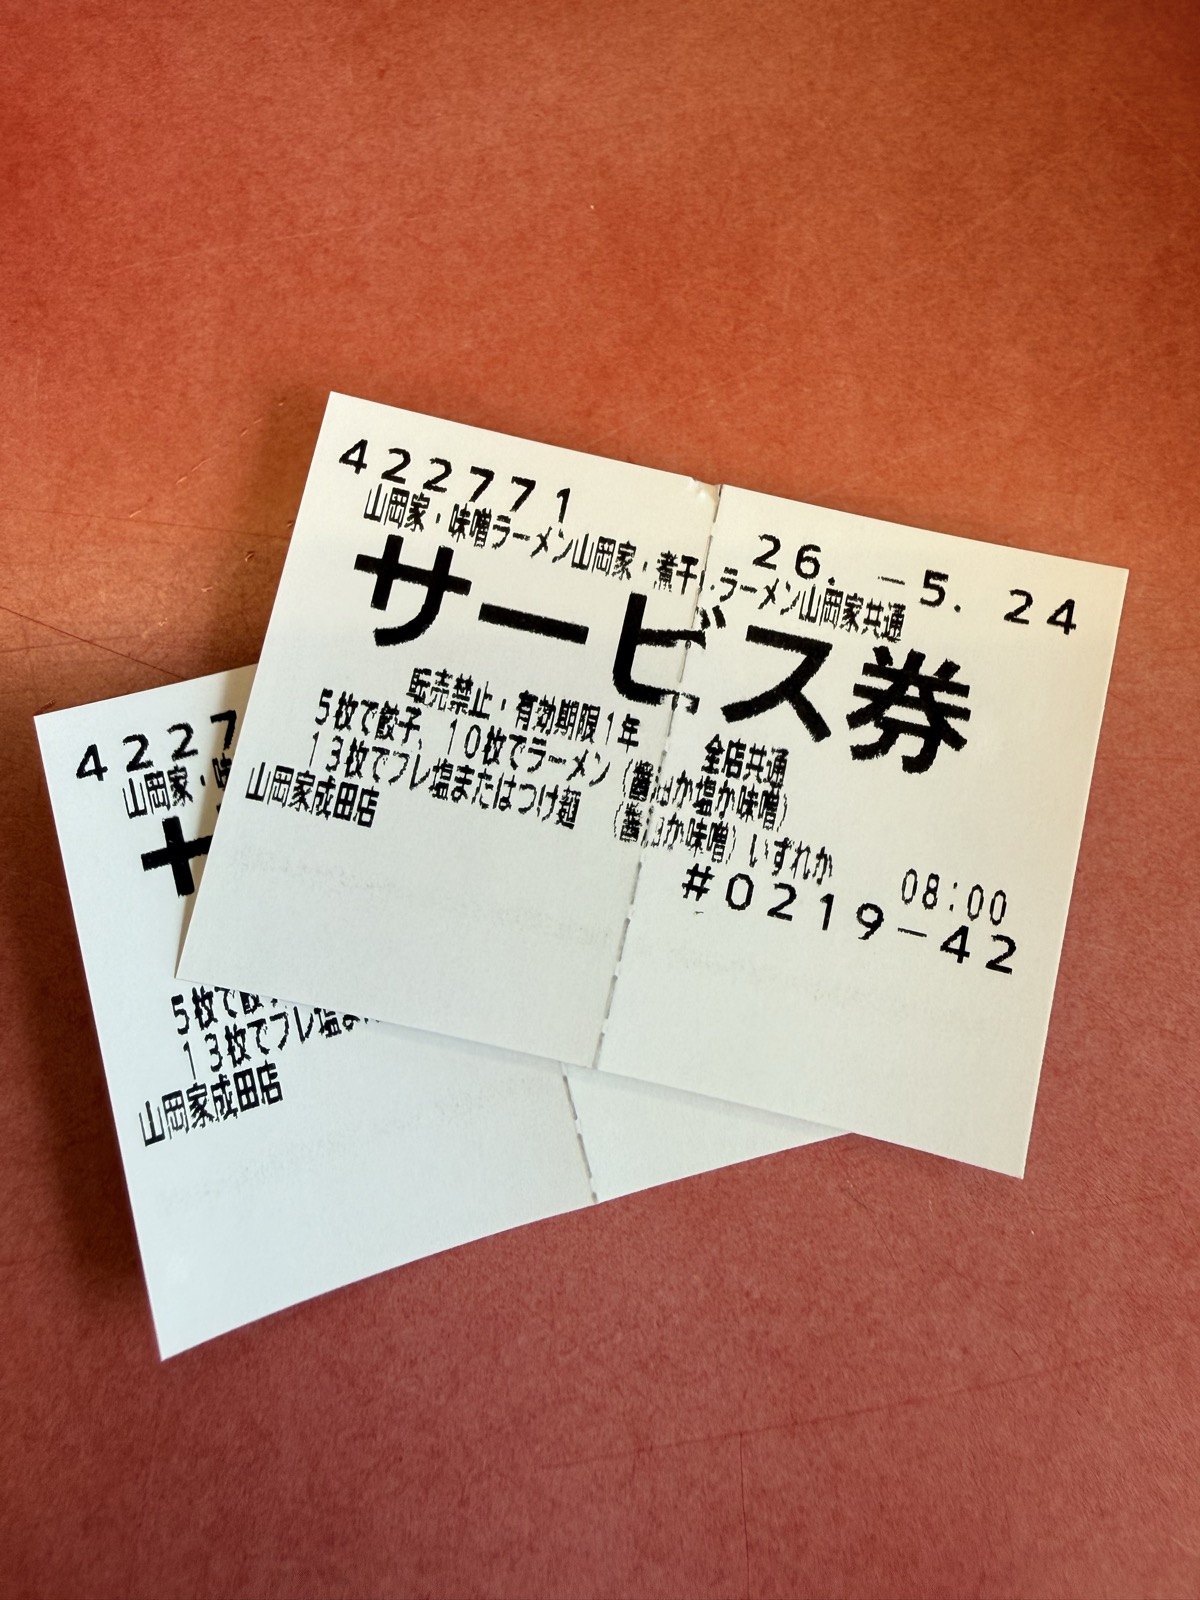 422771
26. -5. 24
山岡家・味噌ラーメン山岡家・煮干しラーメン山岡家共通
サービス券
転売禁止・有効期限1年 全店共通
5枚で餃子、10枚でラーメン（醤油か塩か味噌）
13枚でプレ塩またはつけ麺 （醤油か味噌）いずれか
山岡家成田店 08:00
#0219-42
4227
山岡家・味
5枚で餃子
13枚でプレ塩また
山岡家成田店